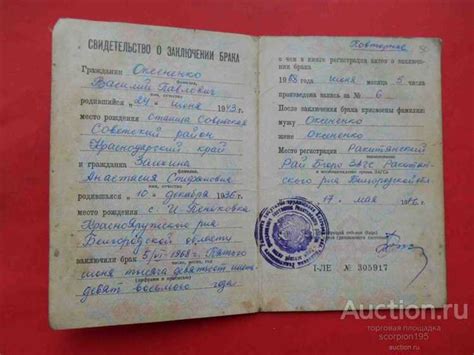 СВИДЕТЕЛЬСТВО О ЗАКЛЮЧЕНИИ БРАКА
Гражданин Оксененко
фамилия
Василий Павлович
имя, отчество
родившийся «24» июня 1943 г.
место рождения Станица Советская
Советский район
Краснодарский край
и гражданка Заикина
фамилия
Анастасия Стефановна
имя, отчество
родившаяся «10» декабря 1936 г.
место рождения с.
Краснояружского р-на
Белгородской области
заключили брак 5/VI-1968г. Пятого
июня тысяча девятьсот шесть
десят восьмого года
Повторное
о чем в книге регистрации актов о заключении брака
1968 года июня месяца 5 числа
произведена запись за № 6
После заключения брака присвоены фамилии:
мужу Оксененко
жене Оксененко
Место регистрации Ракитянский
Рай Бюро ЗАГС Ракитян
ского р-на Белгородской обл.
17 мая 1976 г.
I-ЛЕ № 305917
Auction.ru
торговая площадка
scorpion195